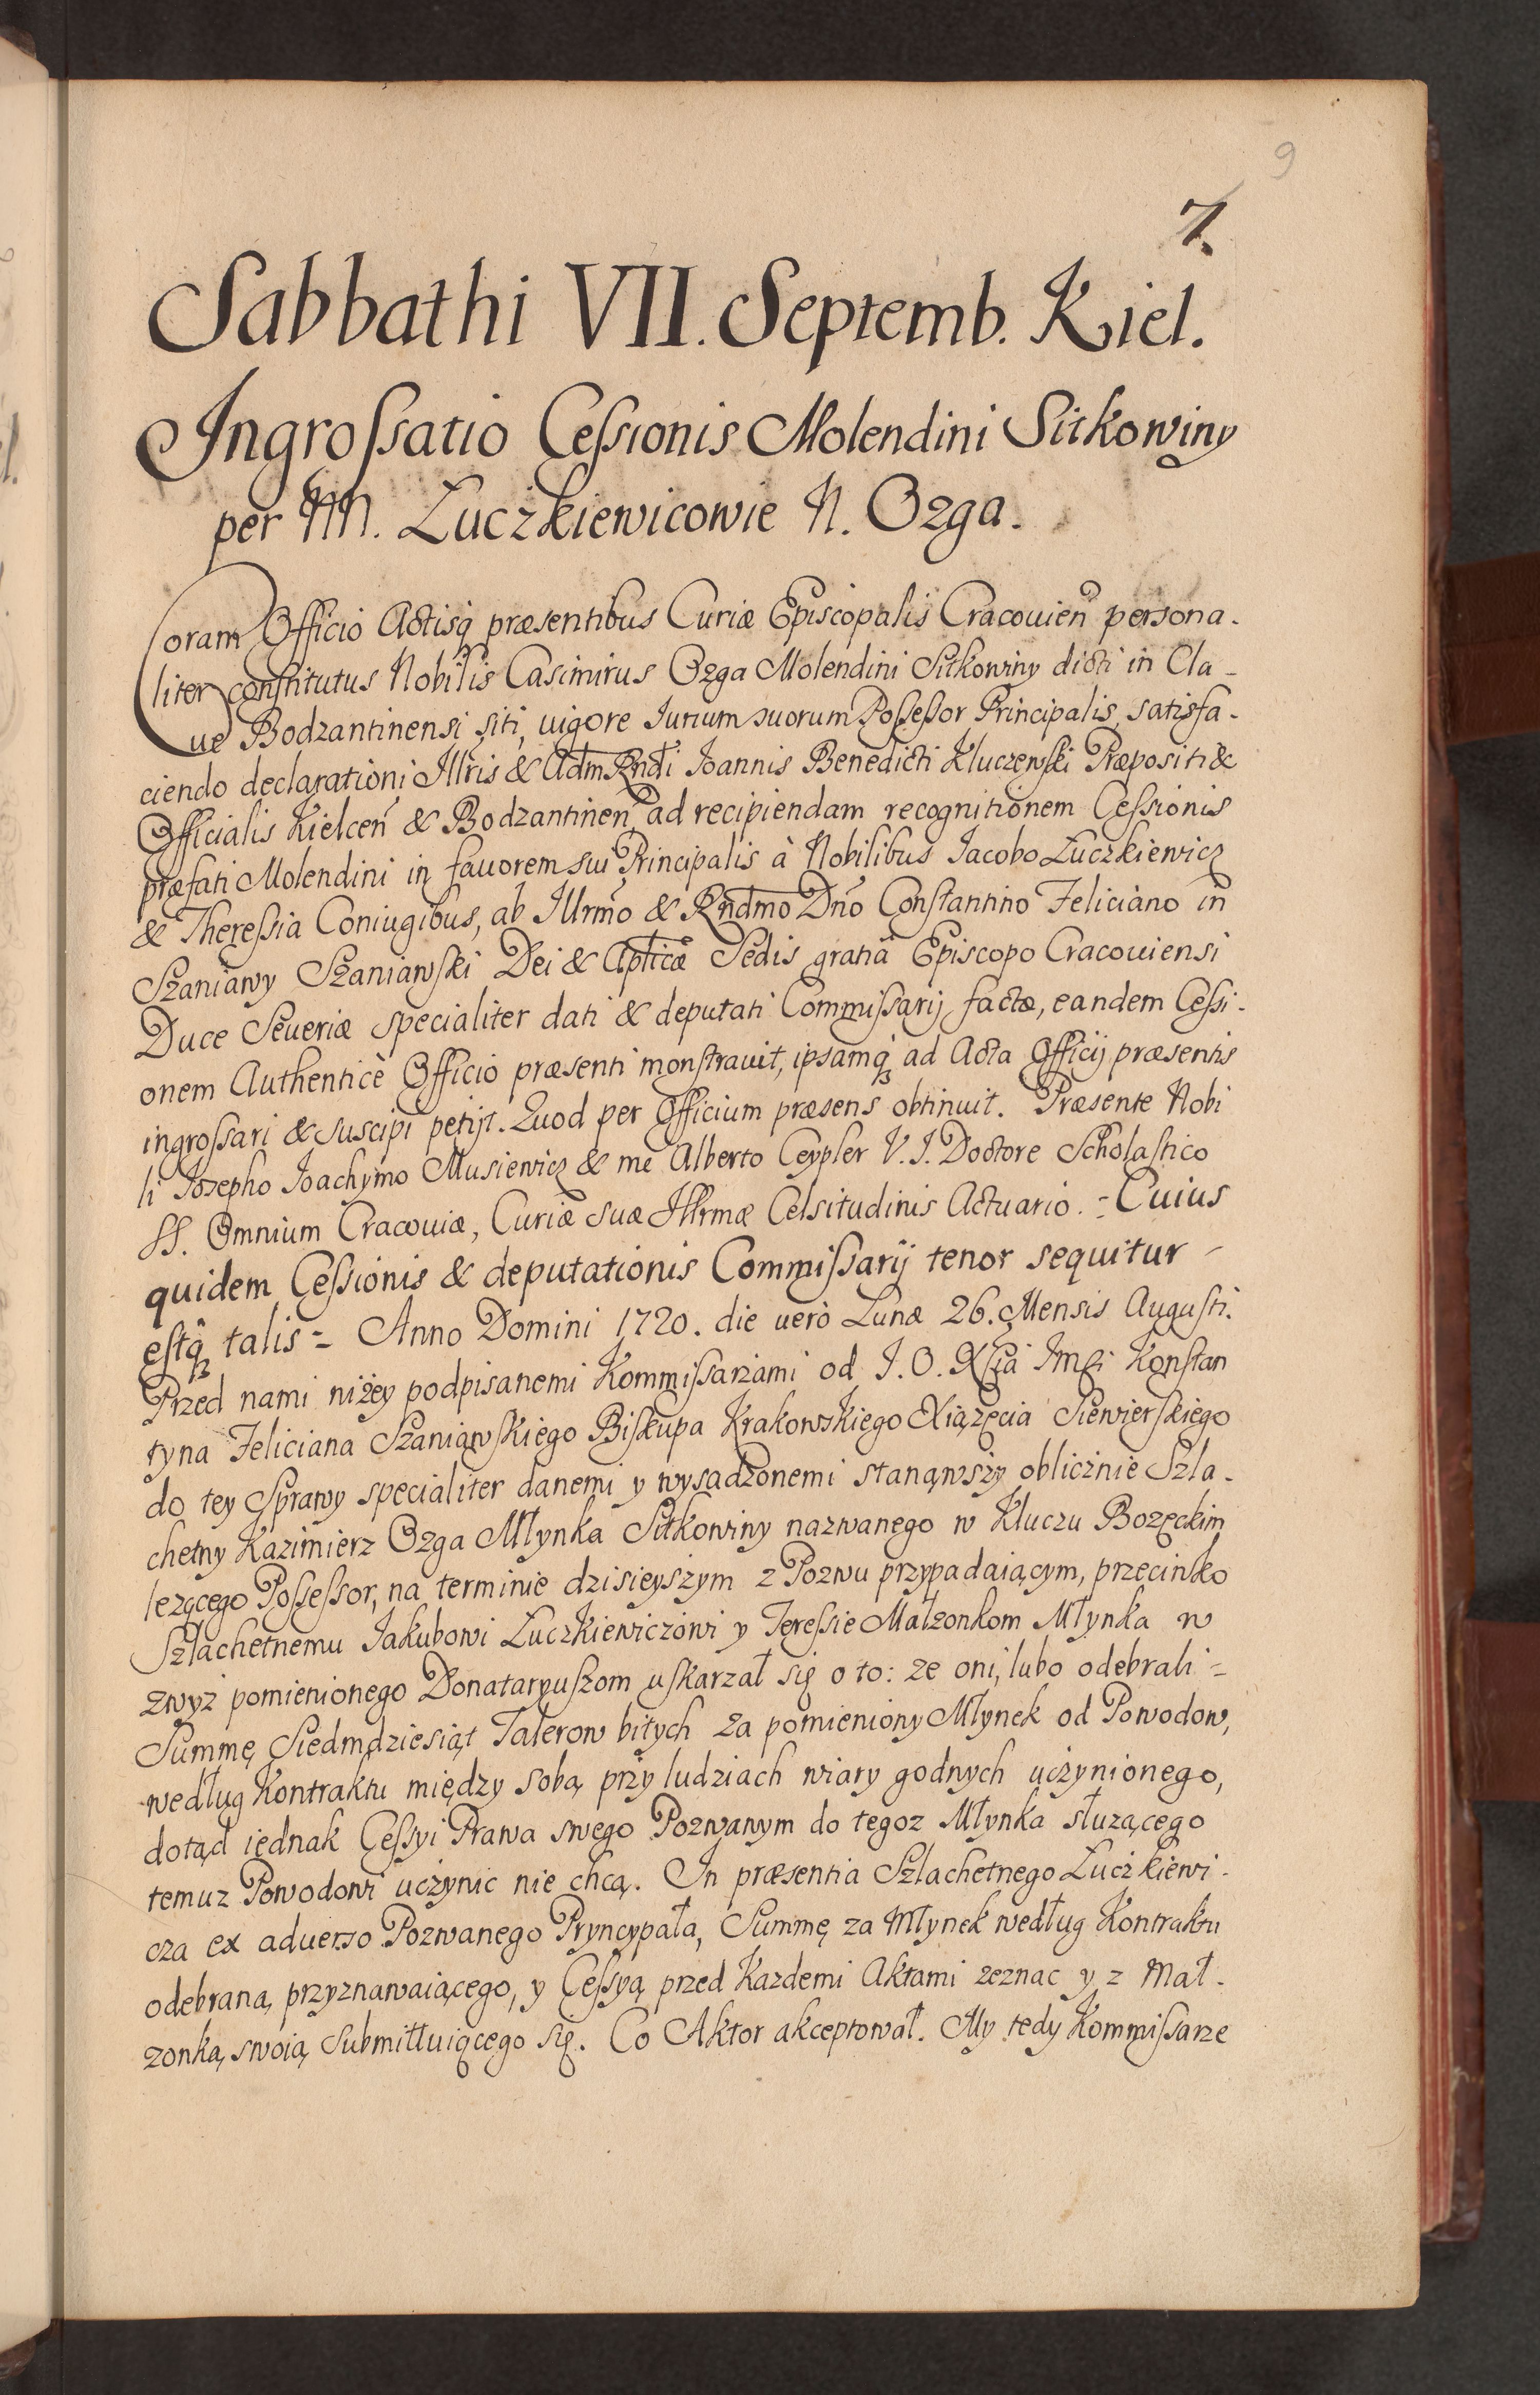 9
7.
Sabbathi VII. Septemb. Kiel.
Ingrossatio Cessionis Molendini Sitkowiny
per NN. Łuczkiewicowie N. Ozga.
Coram Officio Actisq́ præsentibus Curiæ Episcopalis Cracouien̄ persona-
liter constitutus Nobilis Casimirus Ozga Molendini Sitkowiny dicti in Cla-
ue Bodzantinensi siti, uigore Iurium suorum Possessor Principalis, satisfa-
ciendo declarationi Illris & Adm Rndi Ioannis Benedicti Kluczewski Præpositi &
Officialis Kielcen̄ & Bodzantinen̄ ad recipiendam recognitionem Cessionis
præfati Molendini in fauorem sui Principalis à Nobilibus Iacobo Łuczkiewicz
& Theressia Coniugibus, ab Illrmo & Rndmo Dno Constantino Feliciano in
Szaniawy Szaniawski Dei & Aplicæ Sedis gratiâ Episcopo Cracouiensi
Duce Seueriæ specialiter dati & deputati Commissarij factæ, eandem Cessi-
onem Authenticè Officio præsenti monstrauit, ipsamq́ ad Acta Officij præsentis
ingrossari & suscipi petijt. Quod per Officium præsens obtinuit. Præsente Nobi
li Iozepho Ioachymo Musiewicz & me Alberto Ceypler V. I. Doctore Scholastico
SS. Omnium Cracouiæ, Curiæ suæ Illrmæ Celsitudinis Actuario. = Cuius
quidem Cessionis & deputationis Commissarij tenor sequitur -
estq́ talis = Anno Domini 1720. die uerò Lunæ 26. Mensis Augusti.
Przed nami niżey podpisanemi Kommissarzami od J. O. Xcia Jmci Konstan
tyna Feliciana Szaniawskiego Biskupa Krakowskiego Xiążęcia Siewierskiego
do tey Sprawy specialiter danemi y wysadzonemi stanąwszy oblicznie Szla-
chetny Kazimierz Ozga Młynka Sitkowiny nazwanego w Kluczu Bozęckim
lezącego Possessor, na terminie dzisieyszym z Pozwu przypadaiącym, przeciwko
Szlachetnemu Jakubowi Łuczkiewiczowi y Teressie Małzonkom Młynka w
zwyż pomienionego Donataryuszom uskarzał się o to: ze oni, lubo odebrali =
Summę Siedmdziesiąt Talerow bitych za pomieniony Młynek od Powodow,
według Kontraktu między sobą przy ludziach wiary godnych uczynionego,
dotąd iednak Cessyi Prawa swego Pozwanym do tegoz Młynka słuzącego
temuz Powodowi uczynic nie chcą. In præsentia Szlachetnego Łuczkiewi-
cza ex aduerso Pozwanego Pryncypała, Summę za Młynek według Kontraktu
odebraną przyznawaiącego, y Cessyą przed Kazdemi Aktami zeznac y z Mał-
zonką swoią submittuiącego się. Co Aktor akceptował. My tedy Kommissarze